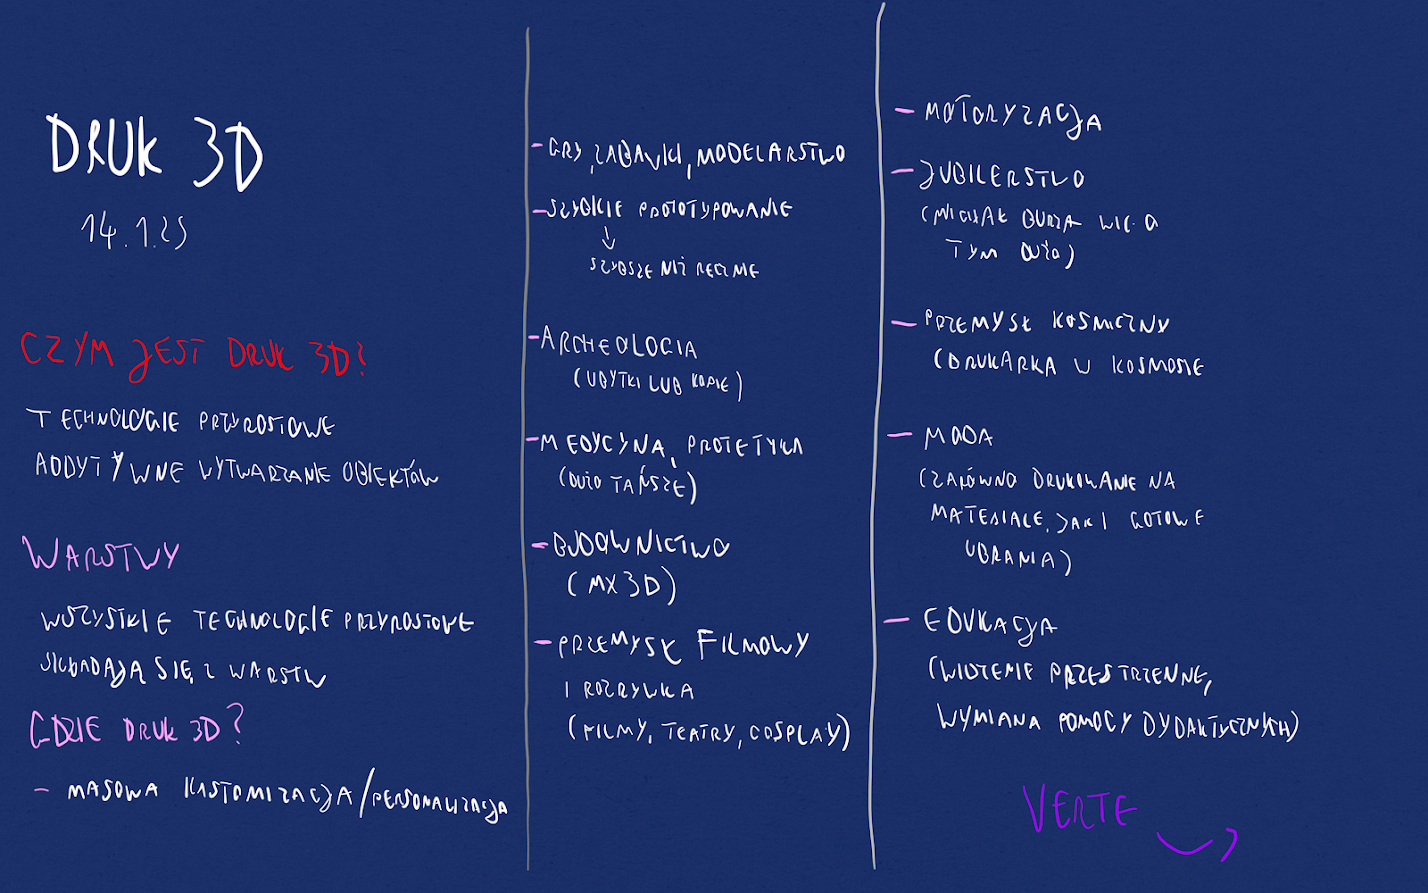 DRUK 3D
14.1.25
CZYM JEST DRUK 3D?
TECHNOLOGIE PRZYROSTOWE
ADDYTYWNE WYTWARZANIE OBIEKTÓW
WARSTWY
WSZYSTKIE TECHNOLOGIE PRZYROSTOWE
SKŁADAJĄ SIĘ Z WARSTW
GDZIE DRUK 3D?
- MASOWA KASTOMIZACJA/PERSONALIZACJA
- GRY, ZABAWKI, MODELARSTWO
- SZYBKIE PROTOTYPOWANIE
↓
SZYBSZE NIŻ RĘCZNE
- ARCHEOLOGIA
(UBYTKI LUB KOPIE)
- MEDYCYNA, PROTETYKA
(DUŻO TAŃSZE)
- BUDOWNICTWO
(MX3D)
- PRZEMYSŁ FILMOWY
I ROZRYWKA
(FILMY, TEATRY, COSPLAY)
- MOTORYZACJA
- JUBILERSTWO
(MICHAŁ BURZA WIE O
TYM DUŻO)
- PRZEMYSŁ KOSMICZNY
(DRUKARKA W KOSMOSIE
- MODA
(ZARÓWNO DRUKOWANIE NA
MATERIALE, JAK I GOTOWE
UBRANIA)
- EDUKACJA
(WIDZENIE PRZESTRZENNE,
WYMIANA POMOCY DYDAKTYCZNYCH)
VERTE